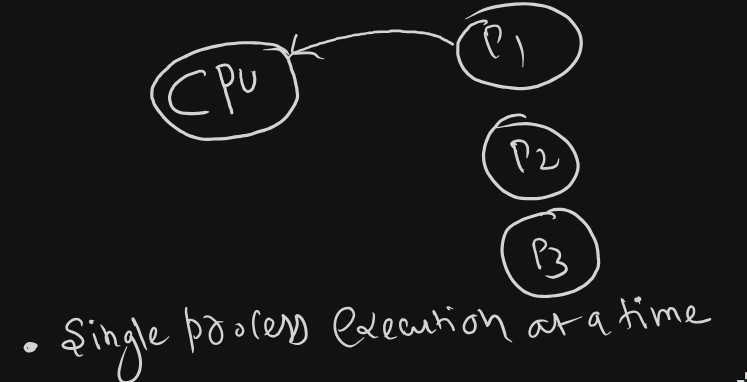 CPU
P1
P2
P3
• Single process execution at a time